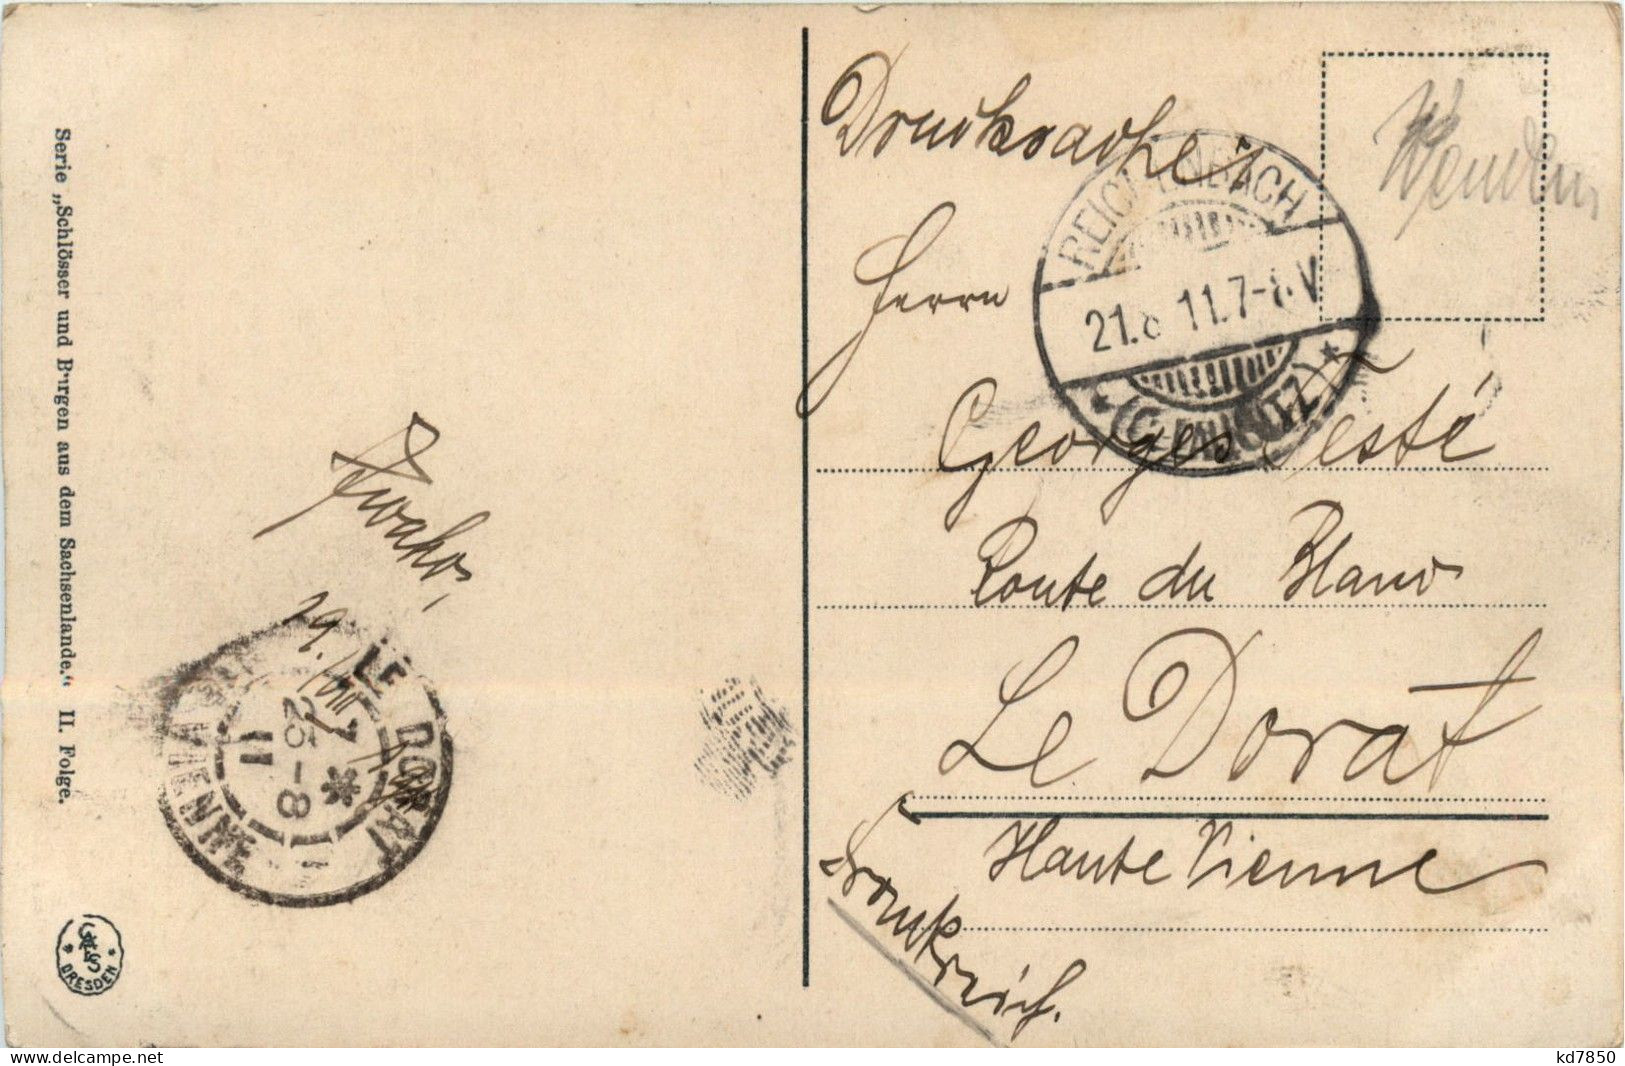 Serie „Schlösser und Burgen aus dem Sachsenlande.“ II. Folge.
DRESDEN
LE DORAT
25 - 8
11
VIENNE
Drucksache
Wenden
REICHENBACH
21.8 11.7-8.V
(CHEMNITZ)
Herrn
Georges Testé
Route du Blanc
Le Dorat
Haute Vienne
Frankreich.
www.delcampe.net
kd7850